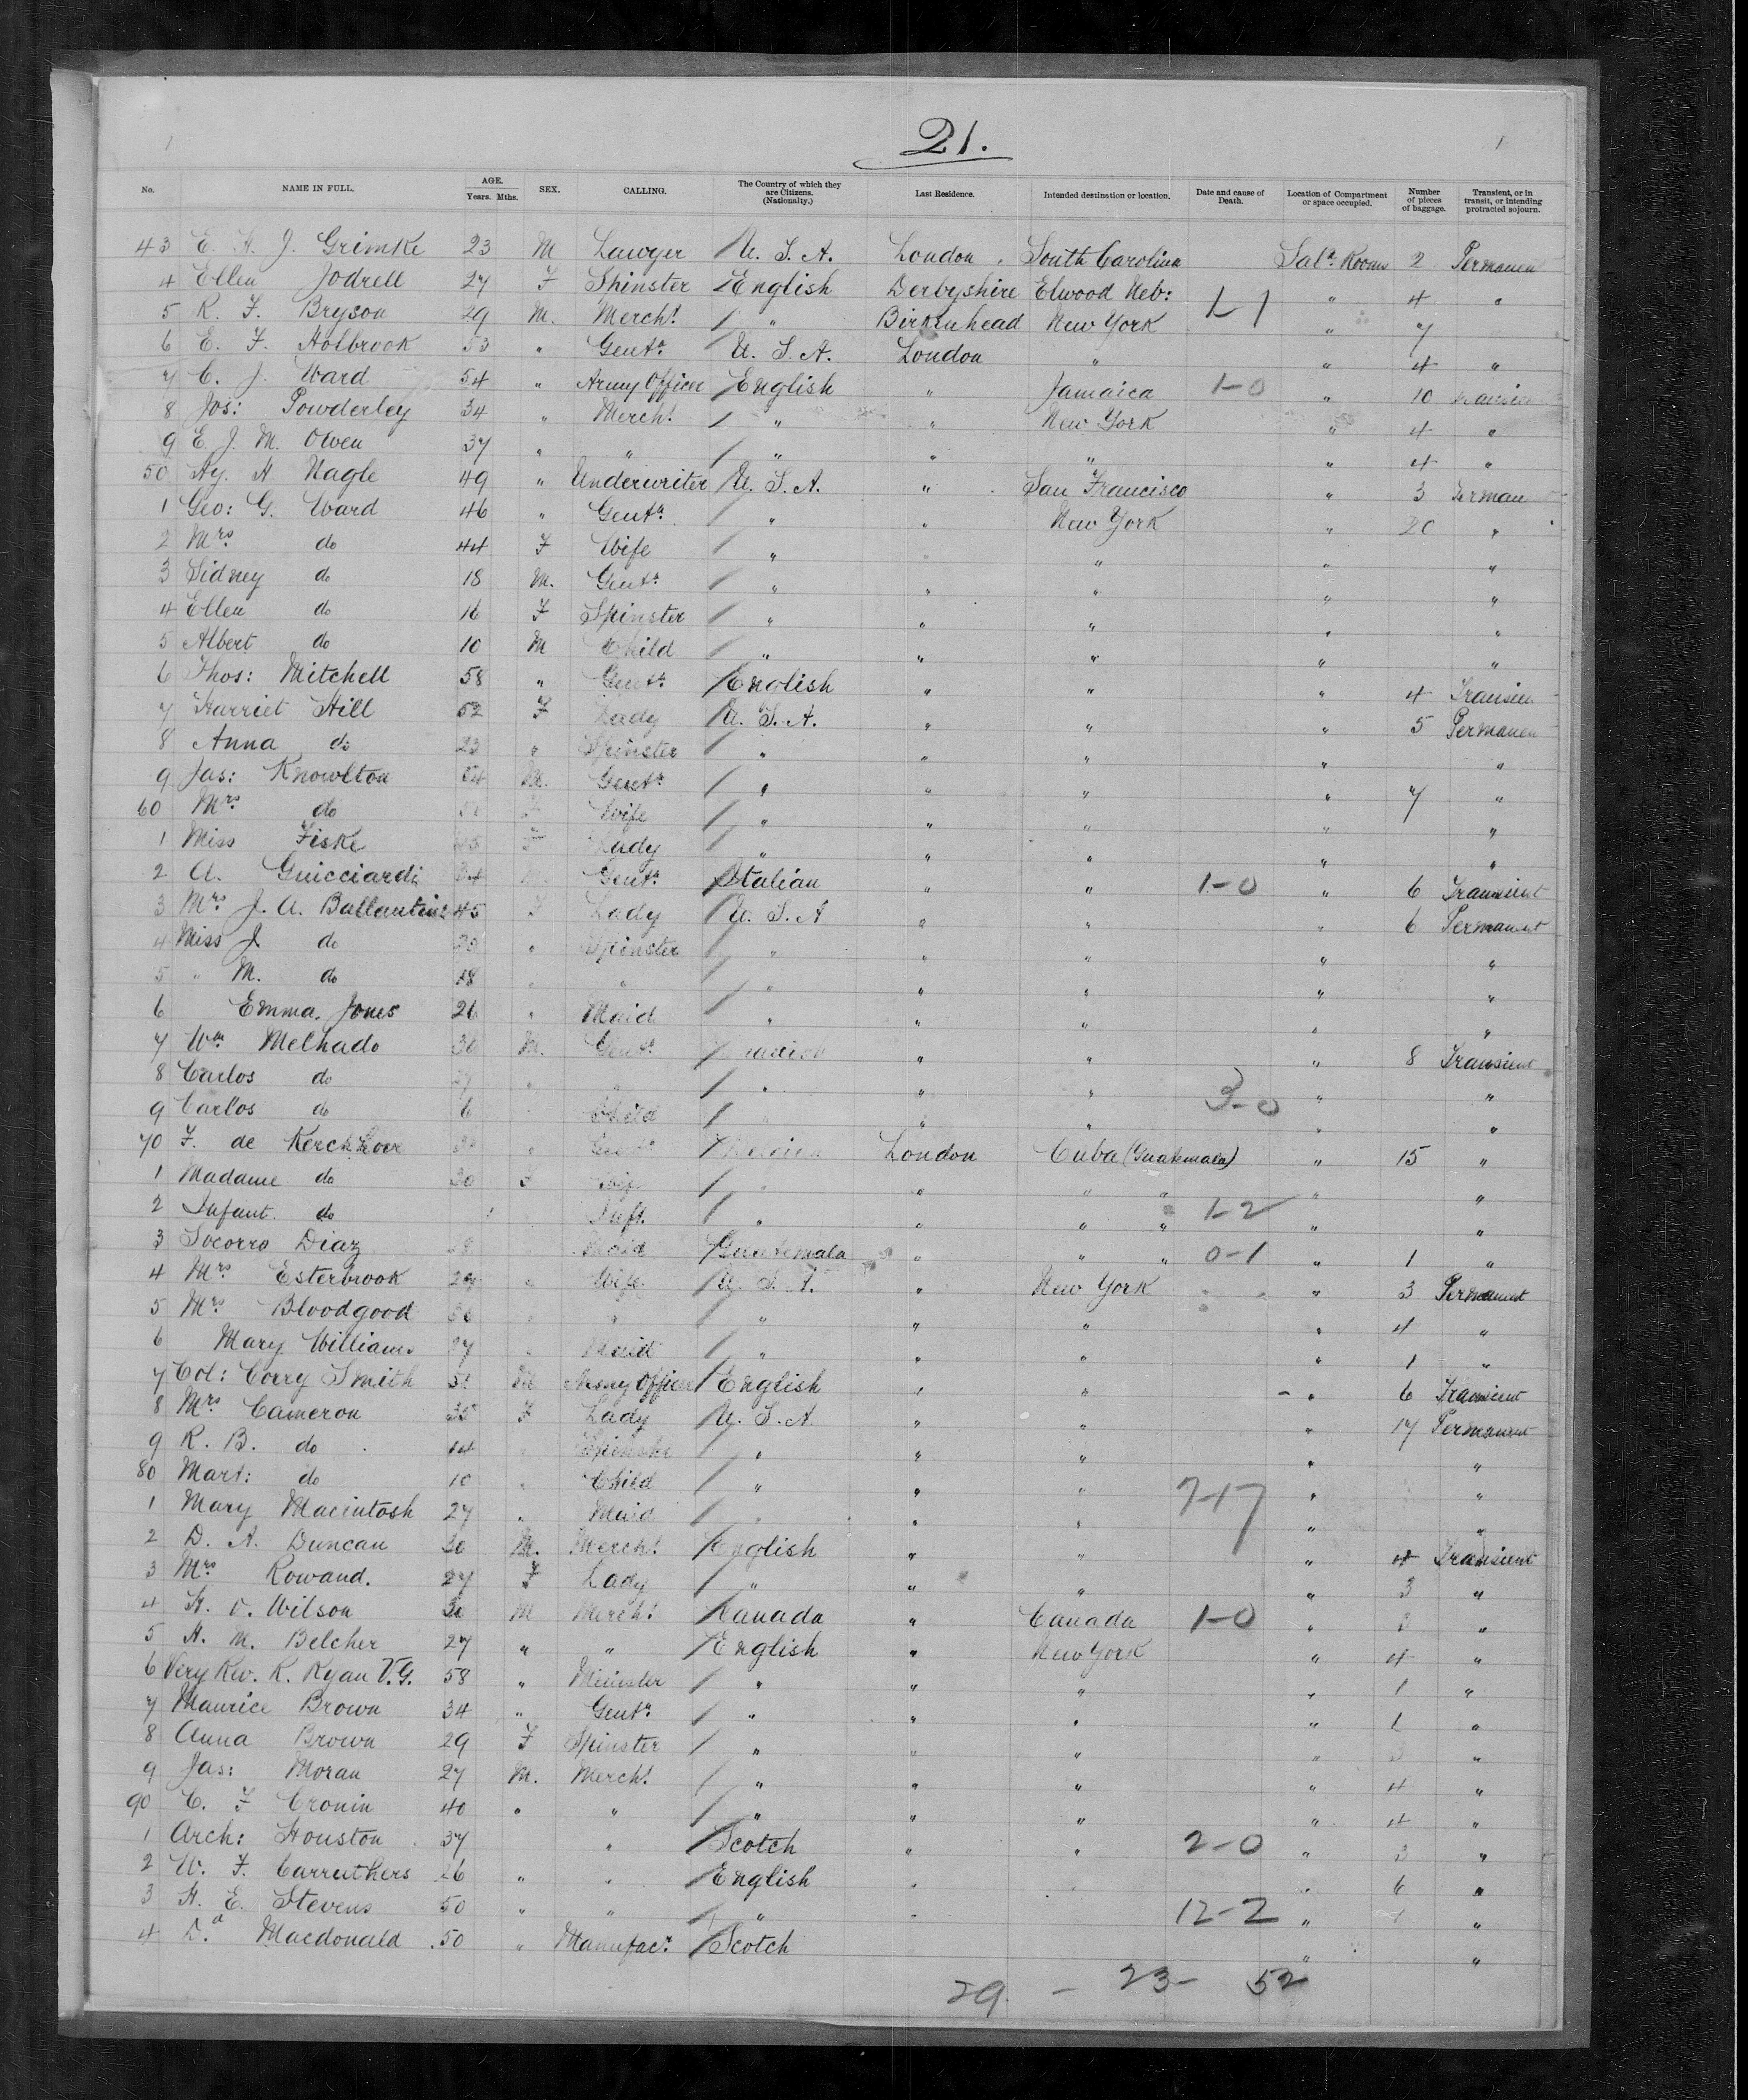 21.
No. NAME IN FULL. AGE. Years. Mths. SEX. CALLING. The Country of which they are Citizens. (Nationalty.) Last Residence. Intended destination or location. Date and cause of Death. Location of Compartment or space occupied. Number of pieces of baggage. Transient, or in transit, or intending protracted sojourn.
43 E. H. J. Grimke 23 M Lawyer U. S. A. London South Carolina Sal. Rooms 2 Permanen
4 Ellen Jodrell 27 F Spinster English Derbyshire Elwood Neb: " 4 "
5 R. F. Bryson 29 M. Merch.t " Birkenhead New York 1-1 " 7
6 E. F. Holbrook 53 " Gent.n U. S. A. London " " 4 "
7 C. J. Ward 54 " Army Officer English " Jamaica 1-0 " 10
8 Jos: Powderley 34 " Merch.t " " New York " 4 "
9 E. J. M. Owen 37 " " " " " " 4 "
50 Hy. H Nagle 49 " Underwriter U. S. A. " San Francisco " 3 Perman
1 Geo: G. Ward 46 " Gent.n " " New York " 20 "
2 Mrs do 44 F Wife " " " " "
3 Sidney do 18 M. Gent.n " " " " "
4 Ellen do 16 F Spinster " " " " "
5 Albert do 10 M Child " " " " "
6 Thos: Mitchell 58 " Gent.n English " " " 4 Transien
7 Harriet Hill 52 F Lady U. S. A. " " " 5 Permanen
8 Anna do 23 " Spinster " " " " "
9 Jas: Knowlton 54 M. Gent.n " " " " 7 "
60 Mrs do F Wife " " " " "
1 Miss Fiske F Lady " " " " "
2 A. Guicciardi 34 Gent.n Italian " " 1-0 " 6 Transient
3 Mrs J. A. Ballantine 45 F Lady U. S. A " " " 6 Permanent
4 Miss J do " Spinster " " " " "
5 " M. do 18 " " " " " " "
6 Emma Jones 26 " Maid " " " " "
7 Wm Melhado 30 M. Gent.n " " " 8 Transient
8 Carlos do " " " " " " "
9 Carlos do 6 Child " " 3-0 " "
70 F. de Kerckhove " Gent.n London Cuba (Guatemala) " 15 "
1 Madame do 30 F Wife " " " " " "
2 Infant do Inft. " " " " 1-2 " "
3 Socorro Diaz Maid Guatemala " " " 0-1 " 1 "
4 Mrs Esterbrook 29 " Wife U. S. A. " New York " 3 Permanent
5 Mrs Bloodgood " " " " " " 4 "
6 Mary Williams 27 " Maid " " " " 1 "
7 Col: Corry Smith M Army Officer English " " " 6 Transient
8 Mrs Cameron 35 F Lady U. S. A. " " " 17 Permanent
9 R. B. do 14 " Spinster " " " " "
80 Mart: do 10 " Child " " " " "
1 Mary Macintosh 27 " Maid " " " 7-17 " "
2 D. A. Duncan 30 M. Merch.t English " " " 4 Transient
3 Mrs Rowand. 27 F Lady " " " " 3 "
4 H. O. Wilson 30 M Merch.t Canada " Canada 1-0 " 3 "
5 H. M. Belcher 27 " " English " New York " 4 "
6 Very Rev. K. Ryan V.G. 58 " Minister " " " " 1 "
7 Maurice Brown 34 " Gent.n " " " " 1 "
8 Anna Brown 29 F Spinster " " " " 3 "
9 Jas: Moran 27 M. Merch.t " " " " 4 "
90 C. F Cronin 40 " " " " " " 4 "
1 Arch: Houston 37 " Scotch " " 2-0 " 3 "
2 W. F. Carruthers 26 " " English " " " 6 "
3 H. E. Stevens 50 " " " " 12-2 " "
4 D.d Macdonald 50 " Manufac.r Scotch " "
29. - 23 - 52